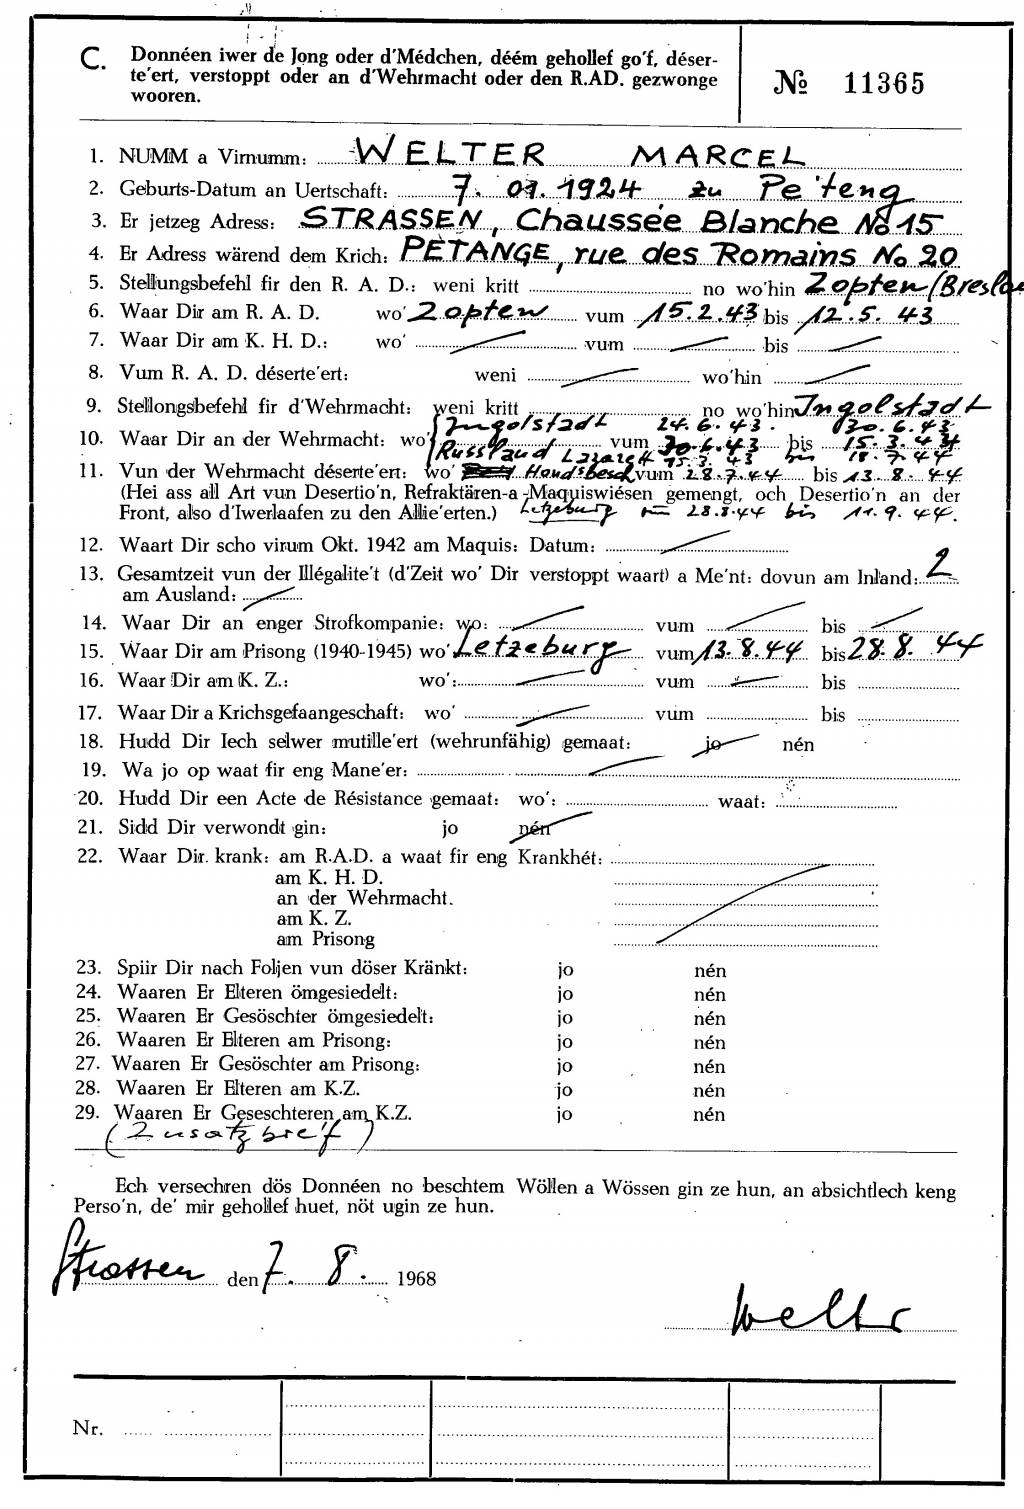 C. Donnéen iwer de Jong oder d'Médchen, déém gehollef go'f, déser-
te'ert, verstoppt oder an d'Wehrmacht oder den R.AD. gezwonge
wooren.
№ 11365
1. NUMM a Virnumm: WELTER MARCEL
2. Geburts-Datum an Uertschaft: 7. 01. 1924 zu Pe'teng
3. Er jetzeg Adress: STRASSEN, Chaussée Blanche No 15
4. Er Adress wärend dem Krich: PÉTANGE, rue des Romains No 20
5. Stellungsbefehl fir den R. A. D.: weni kritt no wo'hin Zopten (Breslau
6. Waar Dir am R. A. D. wo' Zopten vum 15.2.43 bis 12.5.43
7. Waar Dir am K. H. D.: wo' vum bis
8. Vum R. A. D. déserte'ert: weni wo'hin
9. Stellongsbefehl fir d'Wehrmacht: weni kritt no wo'hin Ingolstadt
Ingolstadt 24.6.43. 30.6.43
10. Waar Dir an der Wehrmacht: wo' vum 30.6.43 bis 15.3.44
Russland Lazarett 15.3. 43 bis 18.7.44
11. Vun der Wehrmacht déserte'ert: wo' Hondsbesch vum 28.7.44 bis 13.8.44
(Hei ass all Art vun Desertio'n, Refraktären-a -Maquiswiésen gemengt, och Desertio'n an der
Front, also d'Iwerlaafen zu den Allie'erten.) Letzeburg 28.8.44 bis 11.9.44.
12. Waart Dir scho virum Okt. 1942 am Maquis: Datum:
13. Gesamtzeit vun der Illégalite't (d'Zeit wo' Dir verstoppt waart) a Me'nt: dovun am Inland: 2
am Ausland:
14. Waar Dir an enger Strofkompanie: wo: vum bis
15. Waar Dir am Prisong (1940-1945) wo' Letzeburg vum 13.8.44 bis 28.8.44
16. Waar Dir am K. Z.: wo': vum bis
17. Waar Dir a Krichsgefaangeschaft: wo' vum bis
18. Hudd Dir Iech selwer mutille'ert (wehrunfähig) gemaat: jo nén
19. Wa jo op waat fir eng Mane'er:
20. Hudd Dir een Acte de Résistance gemaat: wo': waat:
21. Sidd Dir verwondt gin: jo nén
22. Waar Dir. krank: am R.A.D. a waat fir eng Krankhét:
am K. H. D.
an der Wehrmacht.
am K. Z.
am Prisong
23. Spiir Dir nach Foljen vun döser Kränkt: jo nén
24. Waaren Er Elteren ömgesiedelt: jo nén
25. Waaren Er Gesöschter ömgesiedelt: jo nén
26. Waaren Er Elteren am Prisong: jo nén
27. Waaren Er Gesöschter am Prisong: jo nén
28. Waaren Er Elteren am K.Z. jo nén
29. Waaren Er Geseschteren am K.Z. jo nén
(Zusatzbre'f)
Ech versechren dös Donnéen no beschtem Wöllen a Wössen gin ze hun, an absichtlech keng
Perso'n, de' mir gehollef huet, nöt ugin ze hun.
Strassen den 7. 8. 1968
Welter
Nr.